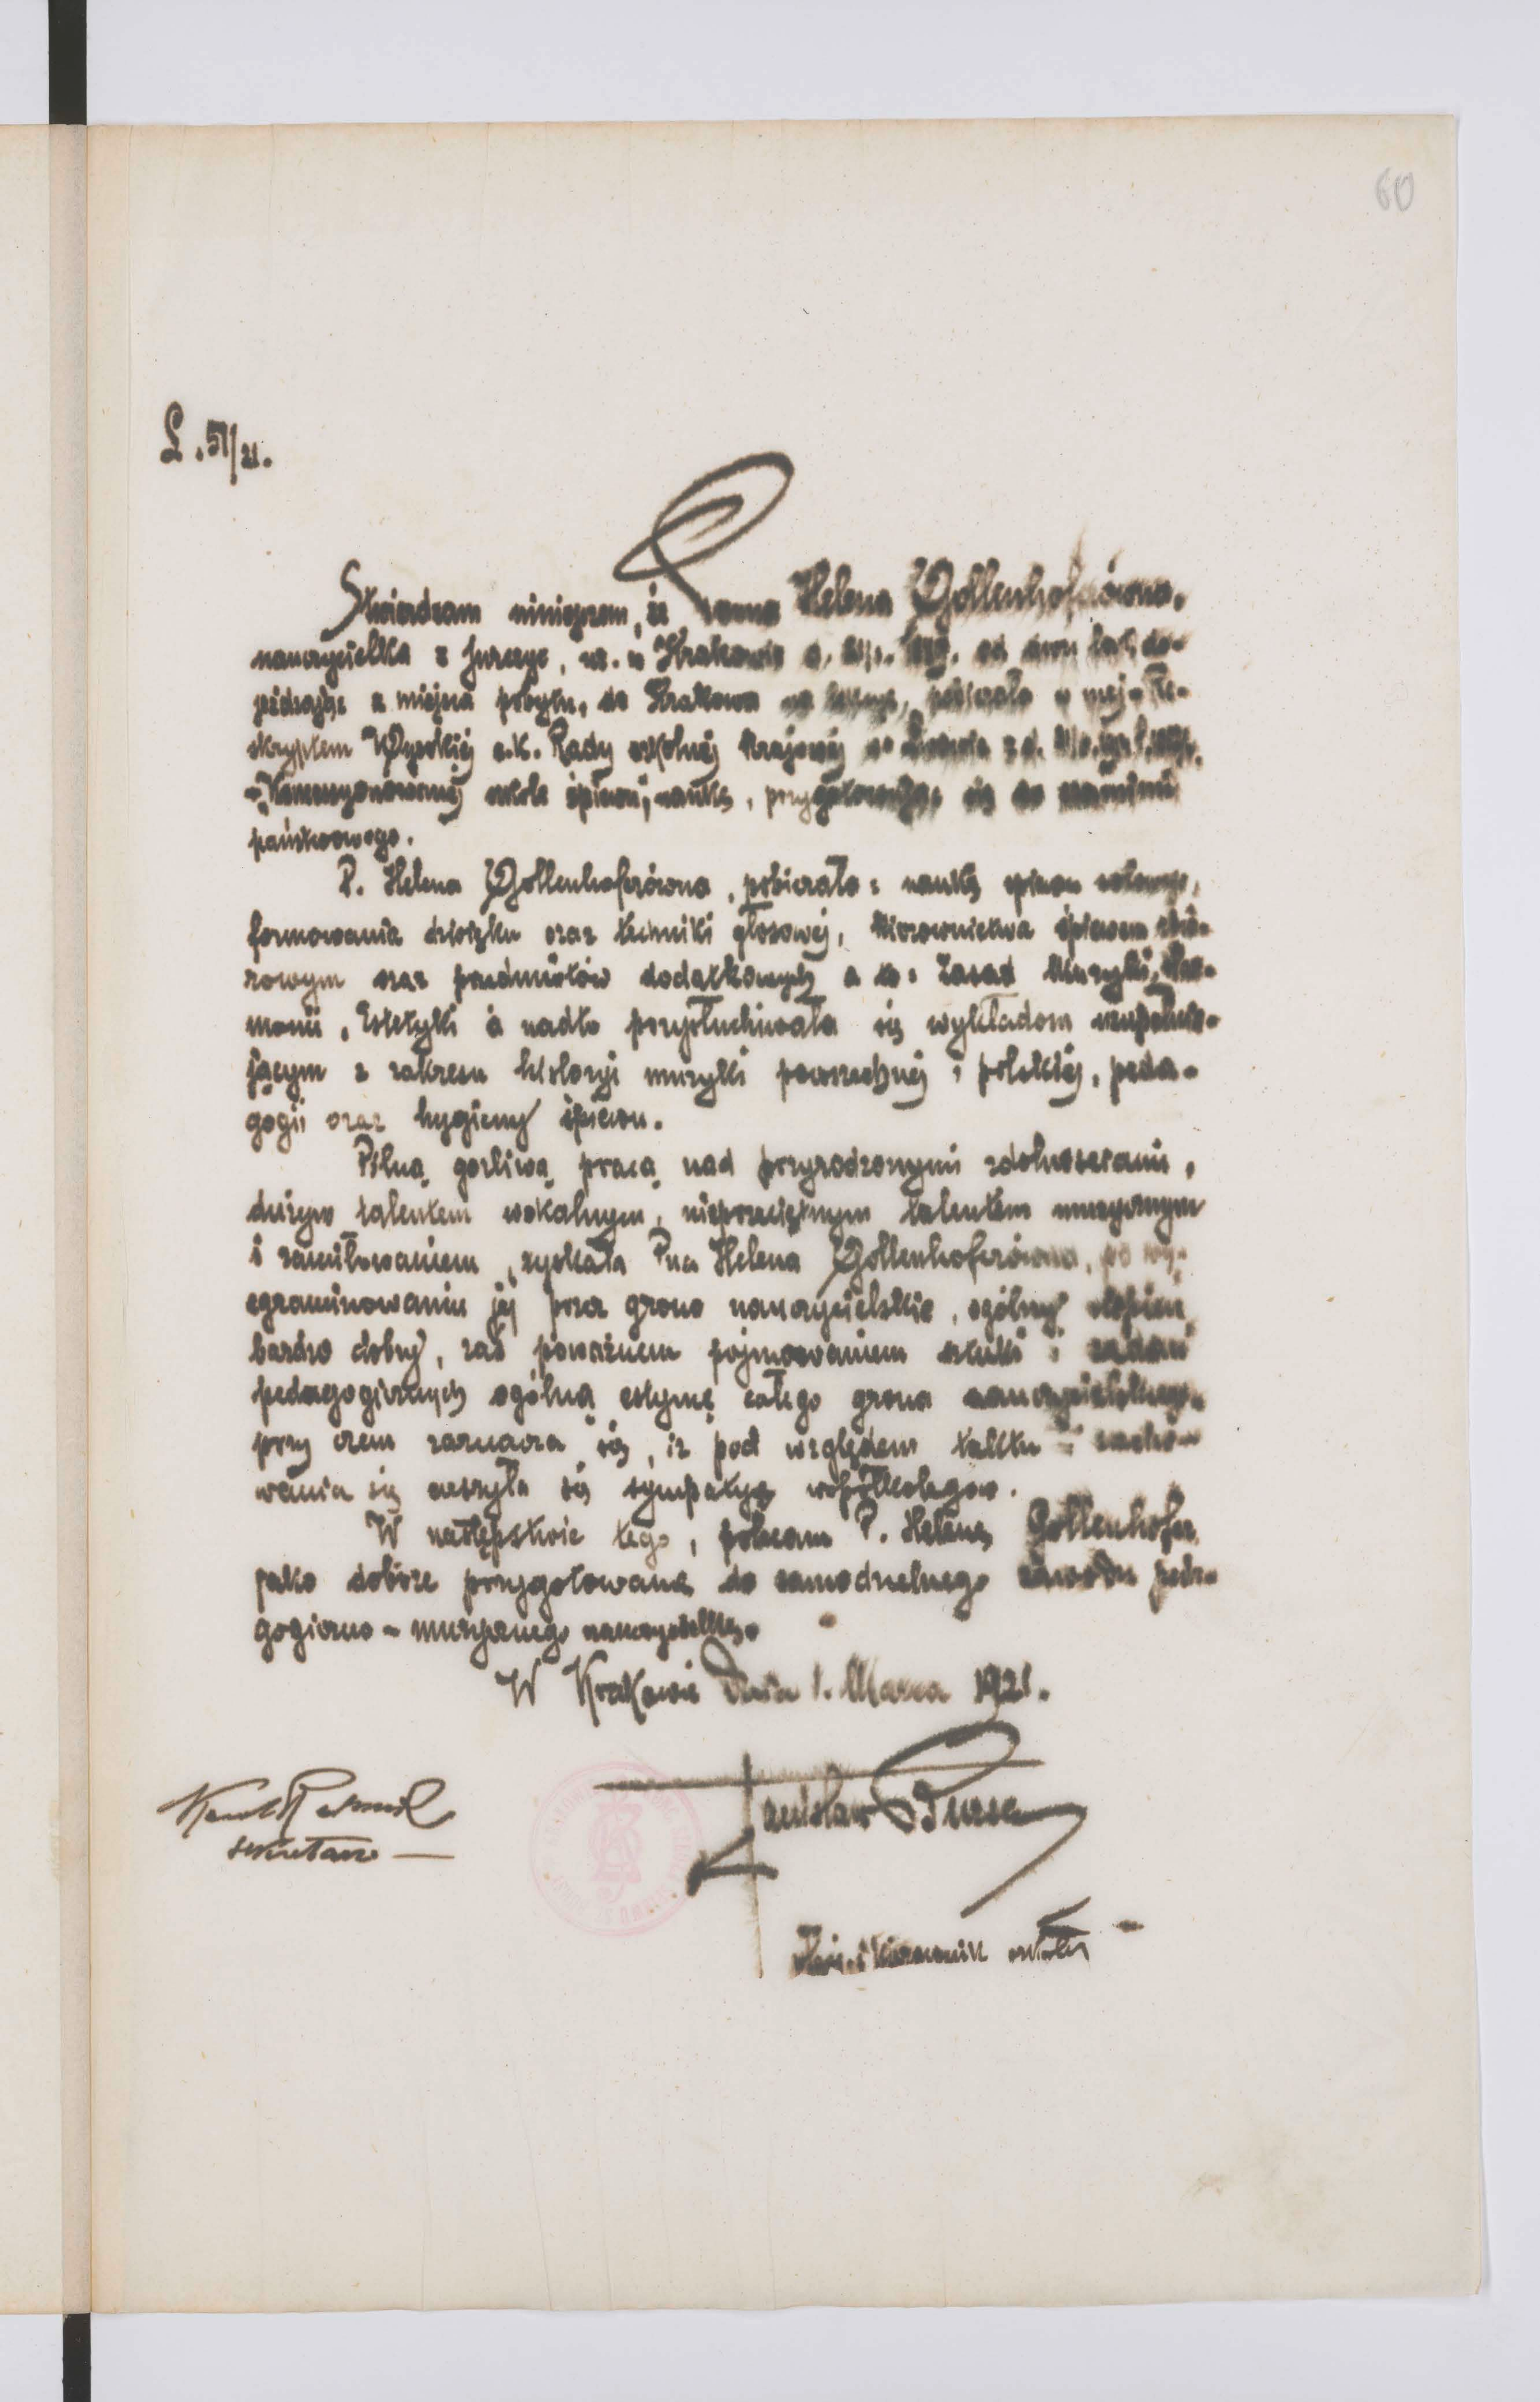 60
L. 51/21.
Stwierdzam niniejszem, że Panna Helena Gollenhoferówna,
nauczycielka z Jurczyc, ur. w Krakowie d. od dwu lat do-
jeżdżając z miejsca pobytu, do Krakowa na pobierała w mej - Re-
skryptem Wysokiej c.k. Rady szkolnej Krajowej we Lwowie z d.
- Koncesyonowanej szkole śpiewu, naukę, przygotowując się do egzaminu
państwowego.
P. Helena Gollenhoferówna, pobierała: naukę śpiewu solowego,
formowania dźwięku oraz techniki głosowej, kierownictwa śpiewem chó-
rowym oraz przedmiotów dodatkowych a to: Zasad Muzyki, Har-
monii, Estetyki a nadto przysłuchiwała się wykładom uzupełnia-
jącym z zakresu historyi muzyki powszechnej i polskiej, peda-
gogii oraz hygieny śpiewu.
Pilną, gorliwą pracą nad przyrodzonymi zdolnościami,
dużym talentem wokalnym, nieprzeciętnym talentem muzycznym
i zamiłowaniem, zyskała Pna Helena Gollenhoferówna, po wy-
egzaminowaniu jej przez grono nauczycielskie, ogólny stopień
bardzo dobry, zaś poważnem pojmowaniem sztuki i zadań
pedagogicznych ogólną estymę całego grona nauczycielskiego
przy czem zaznacza się, iż pod względem taktu i zacho-
wania się cieszyła się sympatyą współkolegów.
W następstwie tego, polecam P. Helenę Gollenhofer
jako dobrze przygotowaną do samodzielnego zawodu peda-
gogiczno - muzycznego nauczycielkę.
W Krakowie Dnia 1. Marca 1921.
Stanisław Bursa
sekretarz
kierownik szkoły